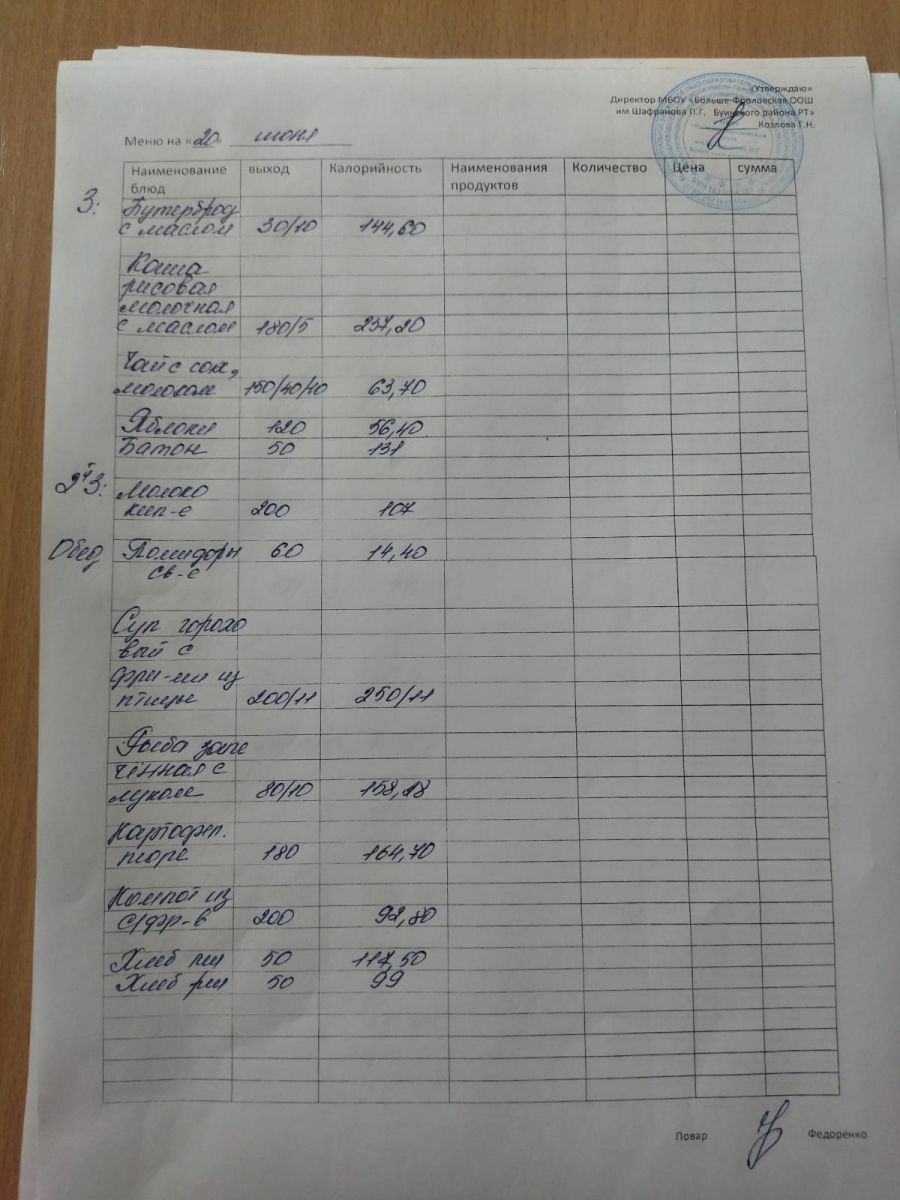 «Утверждаю»
Директор МБОУ «Больше-Фроловская ООШ
им Шафранова П.Г. Буинского района РТ»
Козлова Т.Н.
Меню на «20» июня
Наименование блюд выход Калорийность Наименования продуктов Количество Цена сумма
3: Бутерброд
с маслом 30/10 144,60
Каша
рисовая
молочная
с маслом 180/5 237,20
Чай с
молоком 150/40/10 63,70
Яблоки 120 56,40
Батон 50 131
2й З: Молоко
кип-е 200 107
Обед Помидоры 60 14,40
св-е
Суп горохо
вый с
фри-ми из
птицы 200/11 250/11
Рыба запе
чённая с
луком 80/10 158,18
Картофел.
пюре 180 164,70
Компот из
с/фр-в 200 92,80
Хлеб пш 50 117,50
Хлеб рж 50 99
Повар Федоренко